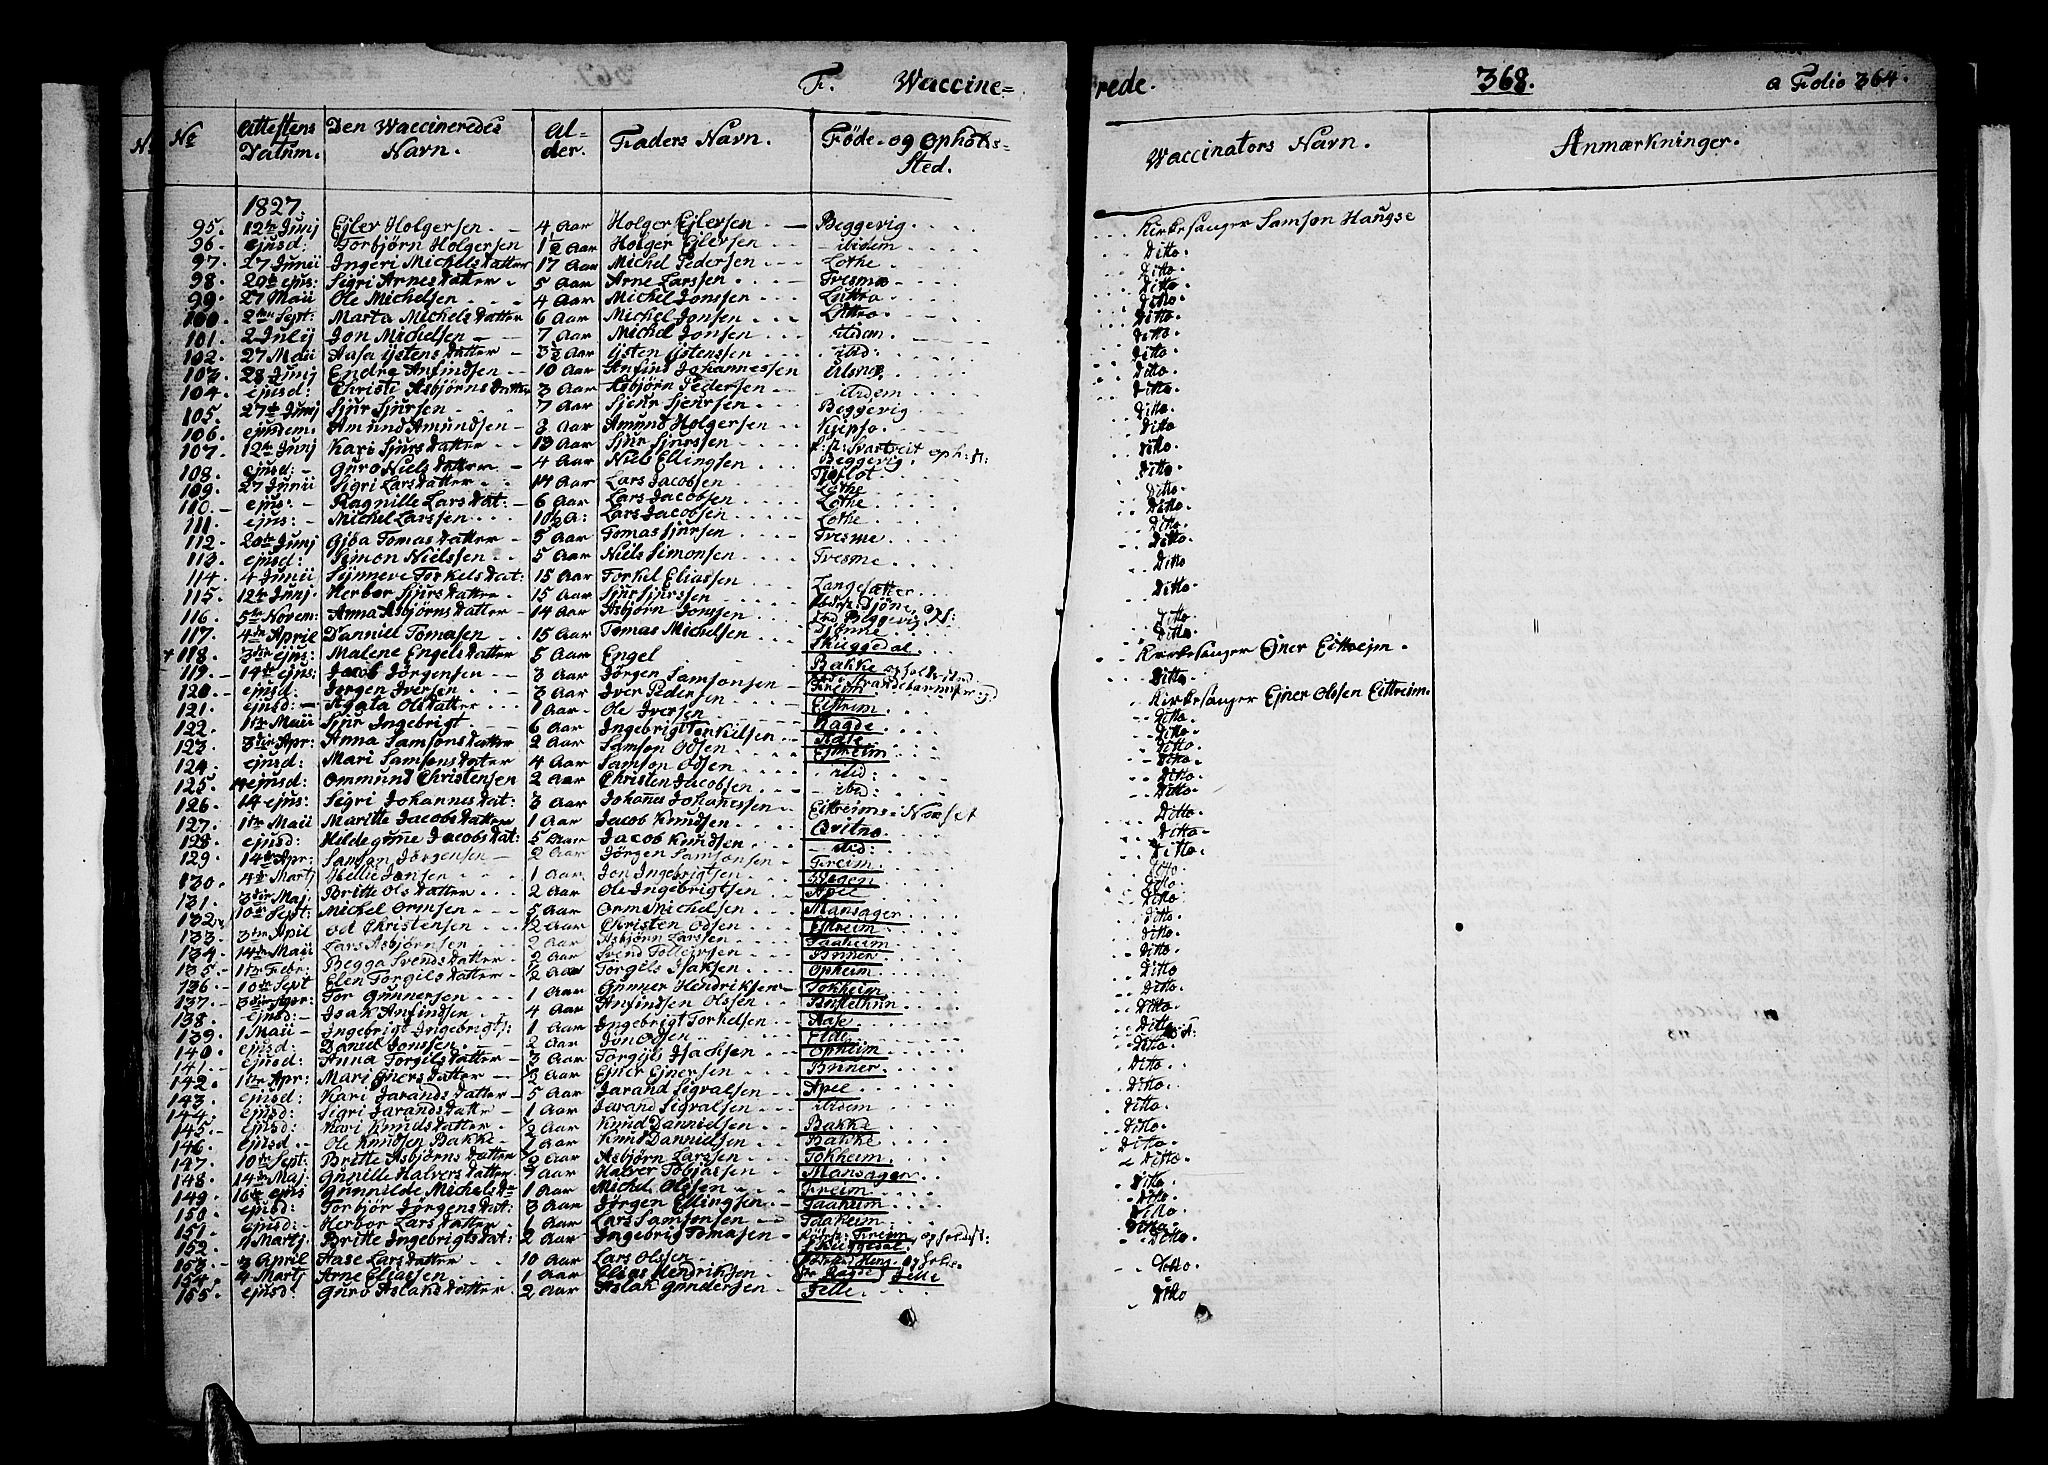 F. Waccine=
rede. 368. a Folio 364.
No Attestens Datum. Den Waccineredes Navn. Al-der. Faders Navn. Føde- og Opholds=Sted. Waccinators Navn. Anmærkninger.
1827
95. 12te Junj Ejler Holgersen 4 Aar Holger Ejlersen Beggevig Kirkesanger Samson Haugse
96. ejusd: Torbjørn Holgersen 1½ Aar Holger Ejlersen ibidem Ditto.
97. 27 Junii Ingeri Michelsdatter 17 Aar Michel Pedersen Lothe Ditto.
98. 20de ejus: Sigri Arnesdatter 5 Aar Arne Larssen Tresmæ Ditto.
99. 27 Maii Ole Michelsen 4 Aar Michel Jonssen Luttro Ditto.
100. 2den Sept: Marta Michelsdatter 6 Aar Michel Jonsen Lüttro Ditto.
101. 2 Julij Jon Michelsen 7 Aar Michel Jonsen ibidem Ditto.
102. 27 Maii Aasa Ijstensdatter 3½ Aar Ijsten Ijstenssen ibid: Ditto.
103. 28 Junj Endre Anfindsen 10 Aar Anfind Johannessen Ulsnæ. Ditto.
104. ejusd: Christi Asbjørnsdatter 3 Aar Asbjørn Pedersen ibidem Ditto.
105. 27de Junij Sjur Sjursen 7 Aar Sjeur Sjeursen Beggevig Ditto.
106. ejusdem. Amund Amundsen 3 Aar Amund Holgersen Ditto
107. 12te Junj Kari Sjursdatter 13 Aar Sjur Sjurssen f: st: Svartveit oph: st: Beggevig. Ditto.
108. ejusd: Guro Nielsdatter 4 Aar Niels Ellingsen Tjoflot Ditto.
109. 27 Junii Sigri Larsdatter 14 Aar Lars Jacobsen Lothe Ditto
110. ejus: Ragnille Larsdat: 6 Aar Lars Jacobsen Lothe Ditto.
111. ejus: Michel Larssen 10½ A: Lars Jacobsen Lothe Ditto.
112. 20de Junj Gjøa Tomasdatter 5 Aar Tomas Sjursen Tresme Ditto.
113. ejusd: Simon Nielssen 5 Aar Niels Simonsen Tresme Ditto
114. 4 Junii Sijnneve Torkelsdat: 15 Aar Torkel Eliassen Langesætter Ditto.
115. 12te Junj. Herbor Sjursdatter 15 Aar Sjur Sjurssen Ditto.
116. 5te Novem: Anna Asbjørnsdatter 14 Aar Asbjørn Jonssen Ditto.
117. 4de April Danniel Tomasen 15 Aar Tomas Michelsen Djønne
118. 3die ejus: Malene Engelsdatter 5 Aar Engel Skuggedal Kirkesanger Ejner Eittrejm.
119. 14de ejus: Jacob Jörgensen 3 Aar Jörgen Samsonsen Bakke Ditto.
120. ejusd. Jørgen Iversen 3 Aar Iver Pedersen Freim Kirkesanger Ejner Olssen Eittreim.
121. ejusd: Agata Olsdatter 1 Aar Ole Iversen Eittreim Ditto.
122. 1ste Maii Sjur Ingebrigt 6 Aar Ingebrigt Torkilsen Ragde Ditto.
123. 3die Apr: Anna Samsonsdatter 2 Aar Samson Odsen Ditto.
124. ejusd: Mari Samsonsdatter 4 Aar Samson Odsen Ejtreim Ditto.
125. ejusd: Ommund Christensen 2 Aar Christen Jacobsen ibid: Ditto.
126. 14 ejus: Sigri Johannesdat: 3 Aar Johannes Johanessen ibid: Ditto.
127. 1ste Maii Maritte Jacobsdatter 1 Aar Jacob Knudsen Eittreims-Næset Ditto.
128. ejusd: Hildegune Jacobsdat: 5 Aar Jacob Knudsen Qvitno Ditto.
129. 14de Apr: Samson Jörgensen 2 Aar Jörgen Samsonsen ibid: Ditto.
130. 4de Martj Hellie Jonsen 1 Aar Jon Ingebrigtsen Freim Ditto
131. 3die Maj Britte Olsdatter 2 Aar Ole Ingebrigtsen Apel Ditto.
132. 10de Sept: Michel Ormsen 5 Aar Orm Michelsen Mansager Ditto.
133. 3die April Od Christensen ½ Aar Christen Odsen Ejtreim Ditto.
134. 14de Maii Lars Asbjörnsen 2 Aar Asbjørn Larssen Taaheim Ditto.
135. 1ste Febr: Begga Svendsdatter 2 Aar Svend Tolleivsen Bruer Ditto.
136. 10de Sept Elen Torgilsdatter 2 Aar Torgils Isaksen Opheim Ditto
137. 3die Apr: Tor Gunnersen 1 Aar Gunner Hendriksen Tokheim Ditto.
138. ejusd: Isak Anfindsen 4 Aar Anfindsen Olssen Bustethun Ditto.
139. 1 Maii Ingebrigt Ingebrigts: 1 Aar Ingebrigt Torkelsen Aase Ditto.
140. ejusd: Daniel Jonssen 2 Aar Jon Odsen Eide Ditto.
141. ejusd: Anna Torgilsdatter 3 Aar Torgils Isachsen Opheim Ditto.
142. 1ste Apr: Mari Ejnersdatter Aar Ejner Ejnersen Bruer Ditto.
143. ejusd: Kari Jarandsdatter 5 Aar Jarand Sigvalsen Apel Ditto.
144. ejusd: Sigri Jarandsdatter 1 Aar Jarand Sigvalsen ibidem Ditto.
145. ejusd: Kari Knudsdatter 2 Aar Knud Dannielsen Bakke Ditto.
146. ejusd. Ole Knudsen Bakke 1 Aar Knud Dannielsen Bakke Ditto.
147. 10de Sept: Britte Asbjørnsdatter Aar Asbjørn Larssen Tokheim Ditto.
148. 14de Maj. Gunille Halversdatter 7 Aar Halver Tobjassen Mansager Ditto.
149. 16de ejus Gunnilde Michelsd 1 Aar Michel Olssen Freim Ditto.
150. ejusd: Torbjör Jörgensdat: 3 Aar Jörgen Ellingsen Taaheim Ditto.
151. ejusd: Herbor Larsdatter 1 Aar Lars Samsonsen Taaheim Ditto.
152. Martj. Britte Ingebrigtsdat: 2 Aar Ingebrig Tomasen Freim, opholdst: Skuggedal. Ditto.
153. 3 April Aase Larsdatter 10 Aar Lars Olssen Ditto.
154. 4 Martj Arne Eliassen 1 Aar Elias Hendriksen Ragde Jelle
155. ejusd. Guro Aslaksdatter 2 Aar Aslak Gundersen Jelle Ditto